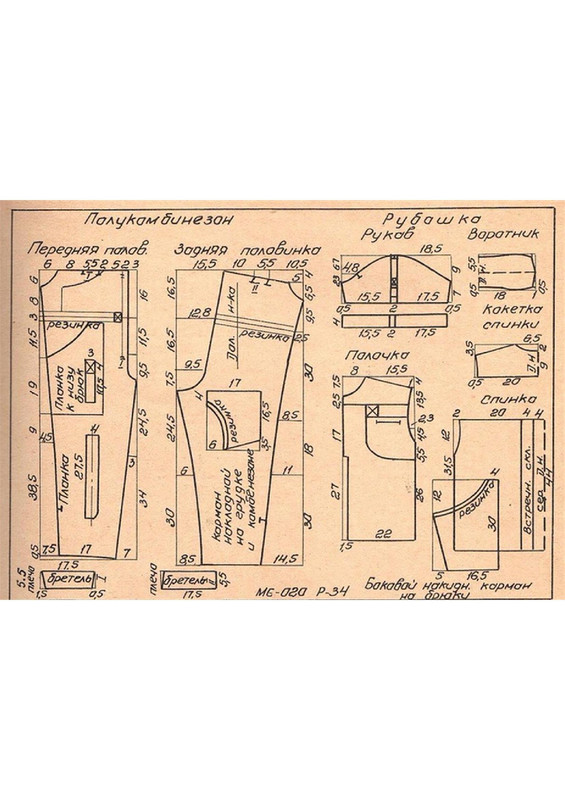 Палукамбинезан
Рубашка
Передняя палов.
Задняя половинка
Рукав
Варатник
6 8 5,5 2 5 2 3
15,5 10 5,5 10,5
18,5
6
8
3
11,5
19
9
4,5
38,5
0,5
7,5
17
7
17,5
16
11,5
9,5
24,5
3
34
резинка
3
17,5
Планка
к низу
брюк
4
Планка
27,5
16,5
12,8
16,5
9,5
7,5
24,5
6
30
8,5
14,5
4
5
6,5
9,5
25
30
8,5
18
11
30
резинка
Дол. н-ка
17
4
резинка
16,5
6
3,5
карман
накладнай
на грудке
и камбенезоне
67
23
4,8
9
7
15,5
17,5
0,5 2 0,5
4
15,5 2 17,5
5,5
0,5
Д.н.
2
18
0,5
Какетка
спинки
6,5
3,5
2
Д.н
9
0,5 20
Палачка
8 15,5
7,5
25
17
27
1,5
22
4
13,5
2,3
4,5
5,5
26
Спинка
2 20 4 4
12
31,5
Встречн. скл.
сер. Д.н.
44
12
4
резинка
30
5 16,5
5.5
плеча
бретель
1,5 0,5
плеча
бретель
5,5
17,5
МБ-020 Р-34
Бакавай накидн. карман
на брюки